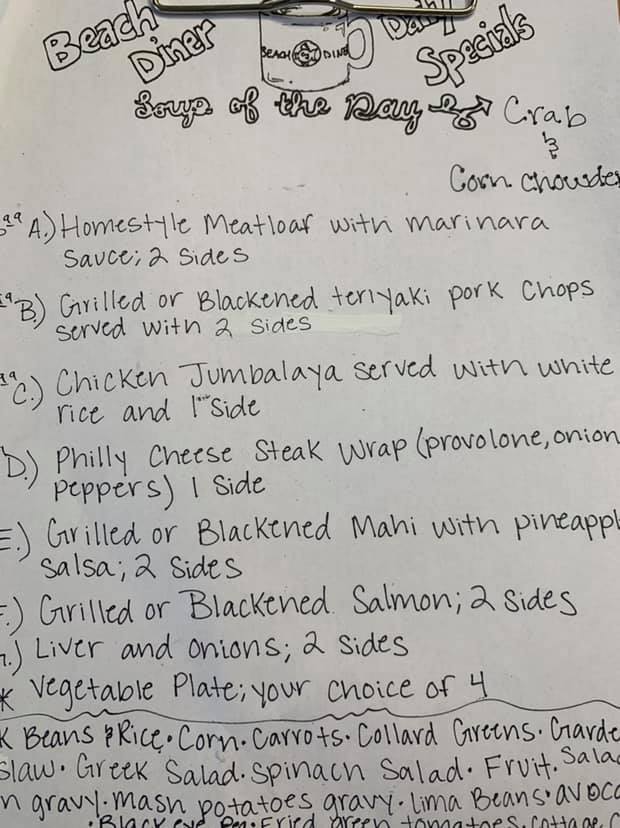 Beach Diner
Daily Specials
BEACH DINE
Soup of the Day Crab
&
Corn chowder
A.) Homestyle Meatloaf with marinara
Sauce; 2 sides
B.) Grilled or Blackened teriyaki pork chops
served with 2 sides
C.) Chicken Jumbalaya served with white
rice and 1 side
D.) Philly Cheese Steak Wrap (provolone, onion
peppers) 1 side
E.) Grilled or Blackened Mahi with pineappl
salsa; 2 sides
F.) Grilled or Blackened Salmon; 2 sides
Liver and onions; 2 sides
* Vegetable Plate; your choice of 4
K Beans & Rice • Corn • Carrots • Collard Greens • Garde
slaw • Greek Salad • Spinach Salad • Fruit • Salad
n gravy • mash potatoes gravy • Lima Beans • avoca
• Black eye Pea • Fried green tomatoes • cottage C